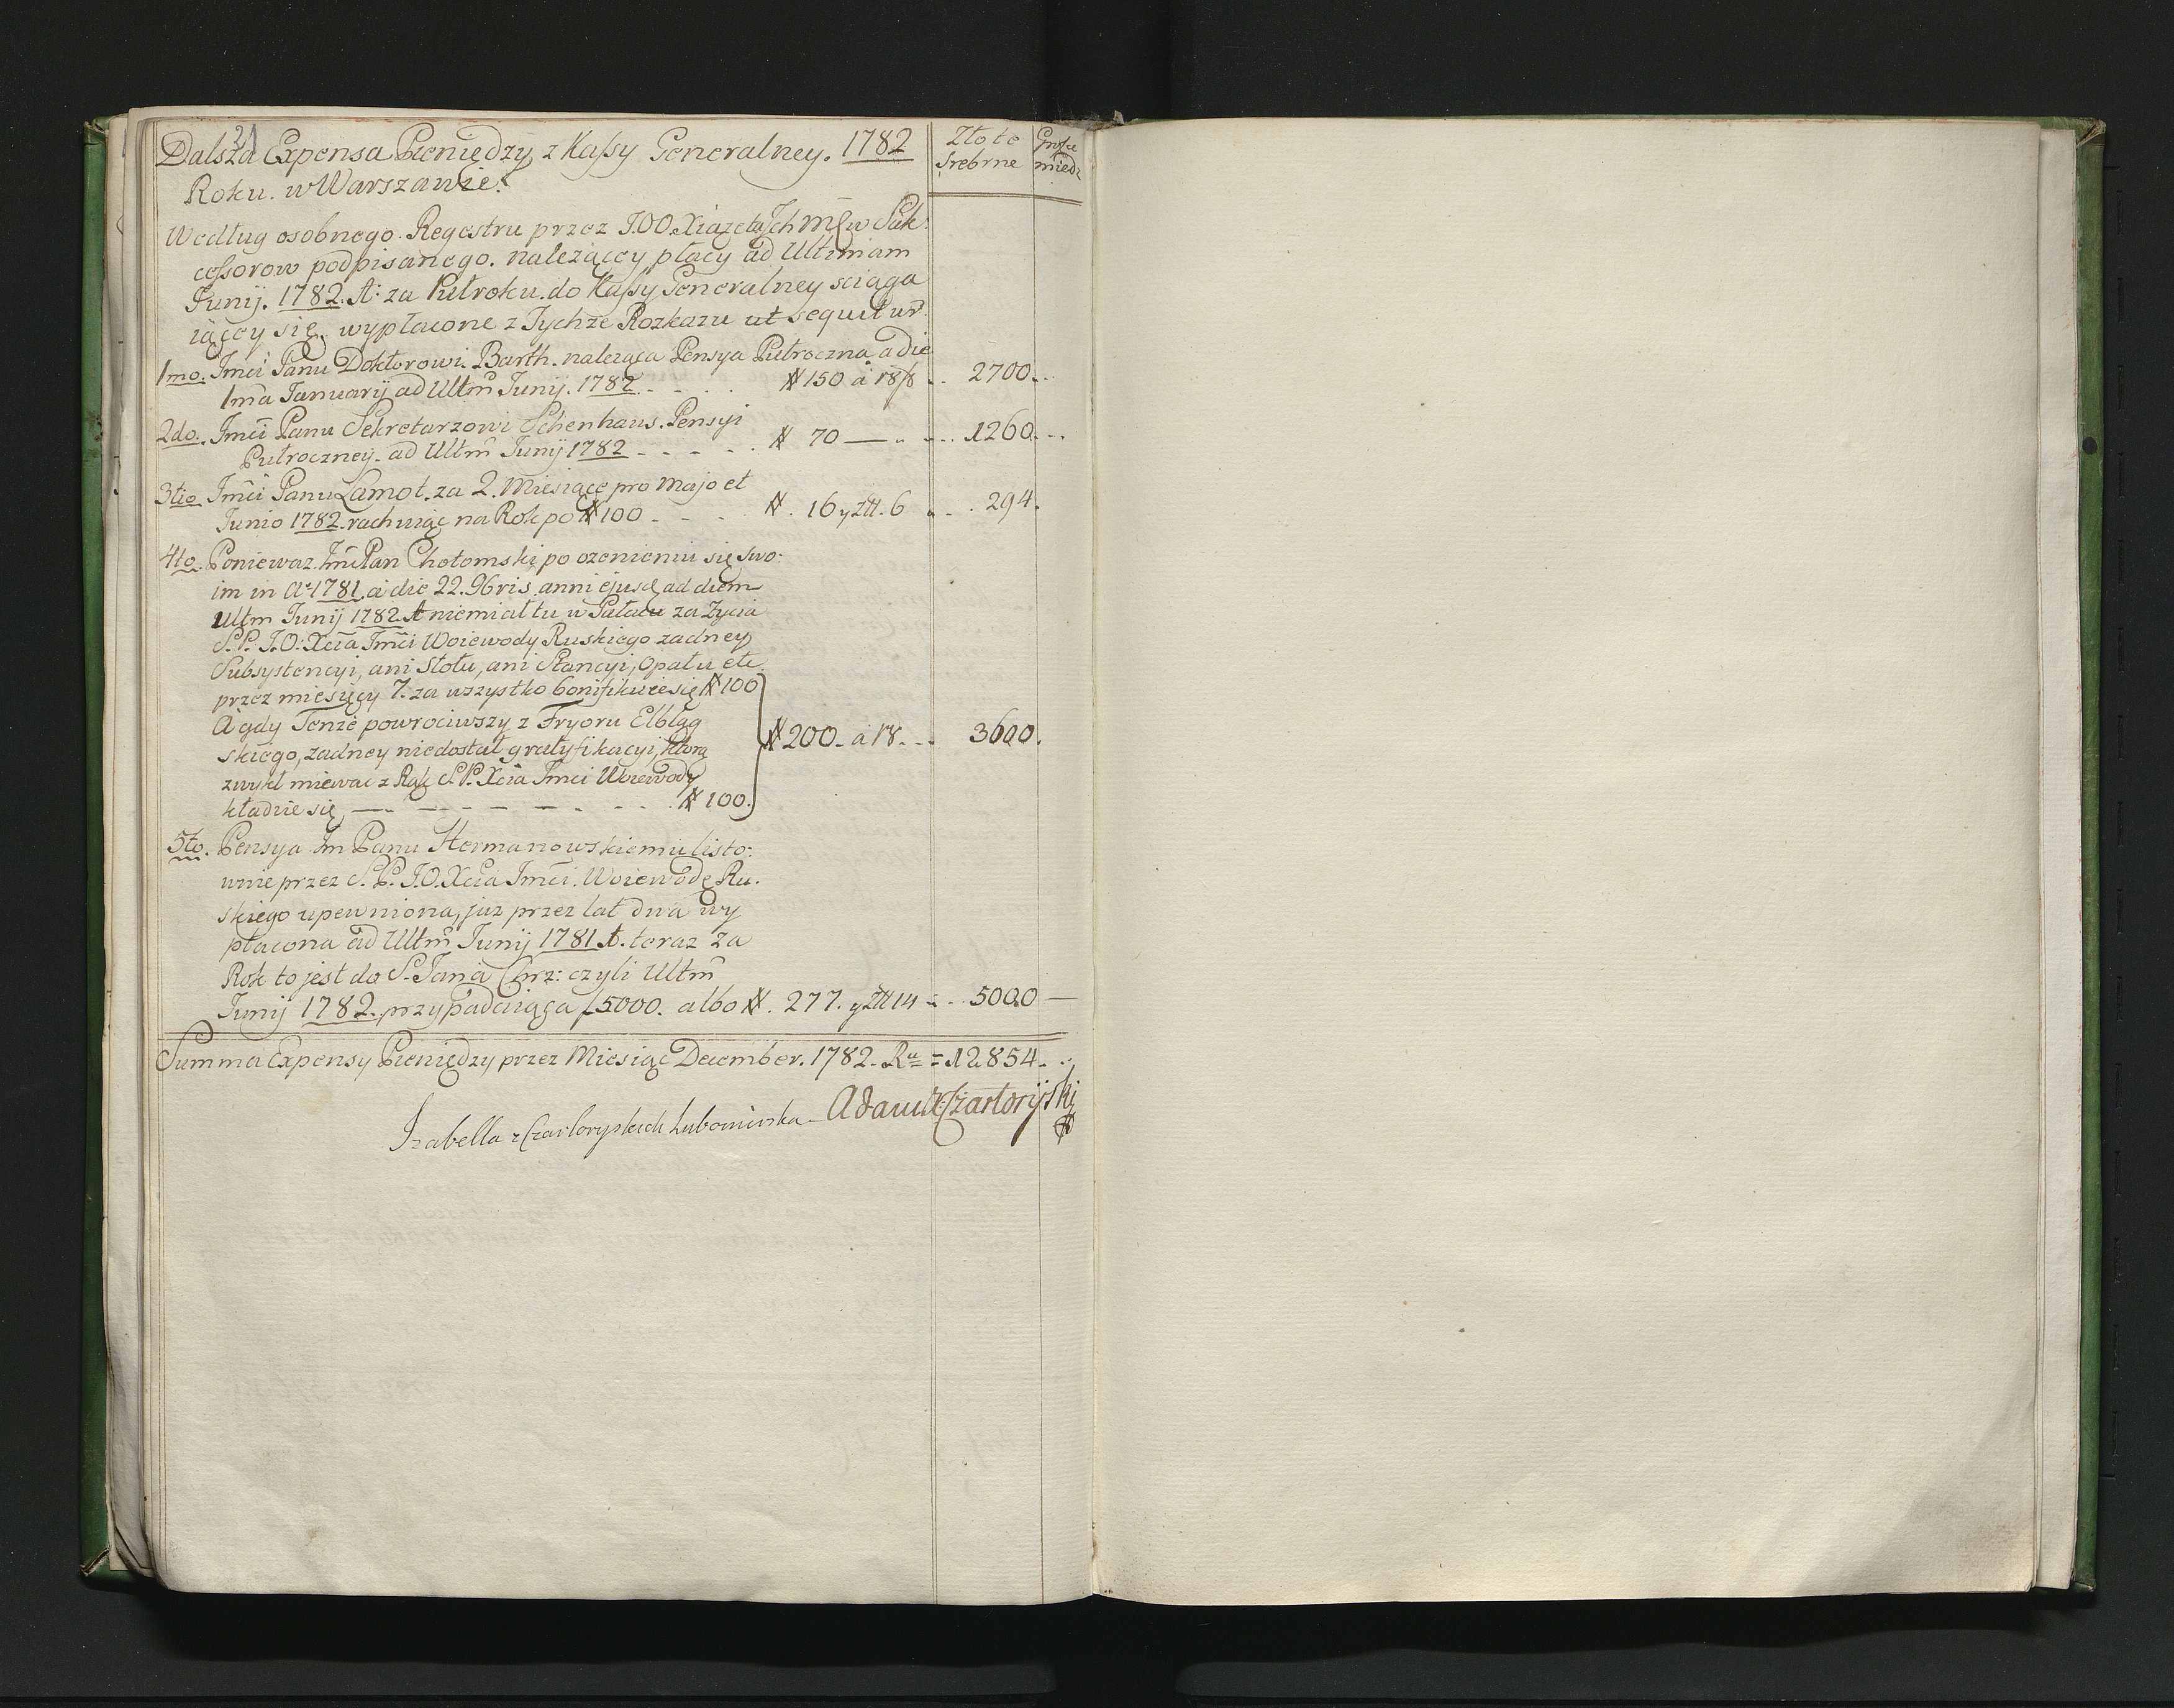 21
Dalsza Expensa Pieniędzy z Kassy Generalney. 1782
Roku. w Warszawie.
Złote srebrne
Grosze miedz
Według osobnego Regestru przez J.OO. Xiążęta Ichmćw Suk:
cessorow podpisanego. należącey płacy ad Ultimam
Junij. 1782. A: za Pułroku. do Kassy Generalney sciąga
iącey się, wypłacone z Tychże Rozkazu ut sequitur
1mo. Jmci Panu Doktorowi Barth. należąca Pensya Pułroczna a die
1ma Januarij ad Ultm Junij. 1782 - - # 150 à 18 f .. 2700 ..
2do. Jmci Panu Sekretarzowi Schenhaus. Pensyi
Pułroczney. ad Ultm Junij 1782 - - - - # 70 — " - .. 1260 ..
3tio. Jmci Panu Lamot. za 2. Miesiące pro Majo et
Junio 1782. rachuiąc na Rok po # 100 - - - #. 16 y złł. 6 .. . 294.
4to. Poniewaz Jmć Pan Chotomski po ozenieniu się swo:
im in Ao 1781. a die 22. 96ris anni ejusd ad diem
Ultm Junij 1782. A niemiał tu w Pałacu za Zycia
S.P. J.O: Xcia Jmci Woiewody Ruskiego zadney
Subsystencyi, ani Stołu, ani Stancyi, Opału etc.
przez miesięcy 7. za wszystko bonifikuie się # 100
A gdy Tenże powrociwszy z Fryoru Elbląg
skiego, zadney niedostał gratyfikacyi, którą
zwykł miewac z Rąk S.P. Xcia Jmci Woiewody
kładzie się — - - - - - - - # 100.
# 200. à 18. .. 3600.
5to. Pensya Jm Panu Hermanowskiemu listo:
wnie przez S.P. J.O. Xcia Jmci. Woiewodę Ru.
skiego upewniona, juz przez lat dwa wy
płacona ad Ultm Junij 1781 A. teraz za
Rok to jest do S. Jana Chrz: czyli Ultm
Junij 1782. przypadaiąca f 5000. albo #. 277. y złł 14 .. 5000 —
Summa Expensy Pieniędzy przez Miesiąc December. 1782. Ru = 12854. .
Izabella z Czartoryskich Lubomirska Adam X Czartoryski